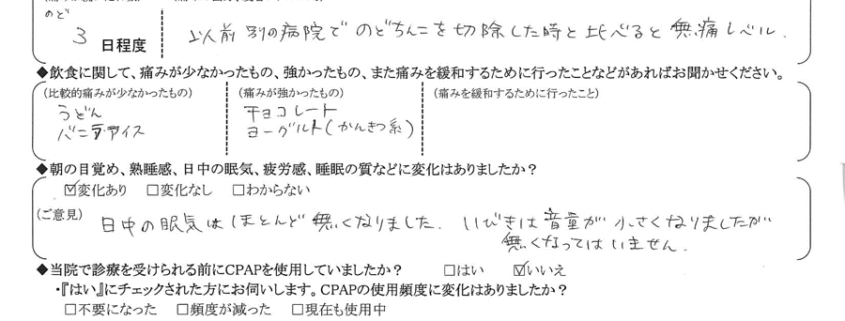 のど
3 日程度
以前 別の病院で のどちんこを切除した時と比べると 無痛レベル.
◆飲食に関して、痛みが少なかったもの、強かったもの、また痛みを緩和するために行ったことなどがあればお聞かせください。
(比較的痛みが少なかったもの) (痛みが強かったもの) (痛みを緩和するために行ったこと)
うどん チョコレート
バニラアイス ヨーグルト(かんきつ系)
◆朝の目覚め、熟睡感、日中の眠気、疲労感、睡眠の質などに変化はありましたか?
☑変化あり □変化なし □わからない
(ご意見) 日中の眠気はほとんど無くなりました. いびきは音量が小さくなりましたが
無くなってはいません.
◆当院で診療を受けられる前にCPAPを使用していましたか? □はい ☑いいえ
・『はい』にチェックされた方にお伺いします。CPAPの使用頻度に変化はありましたか?
□不要になった □頻度が減った □現在も使用中